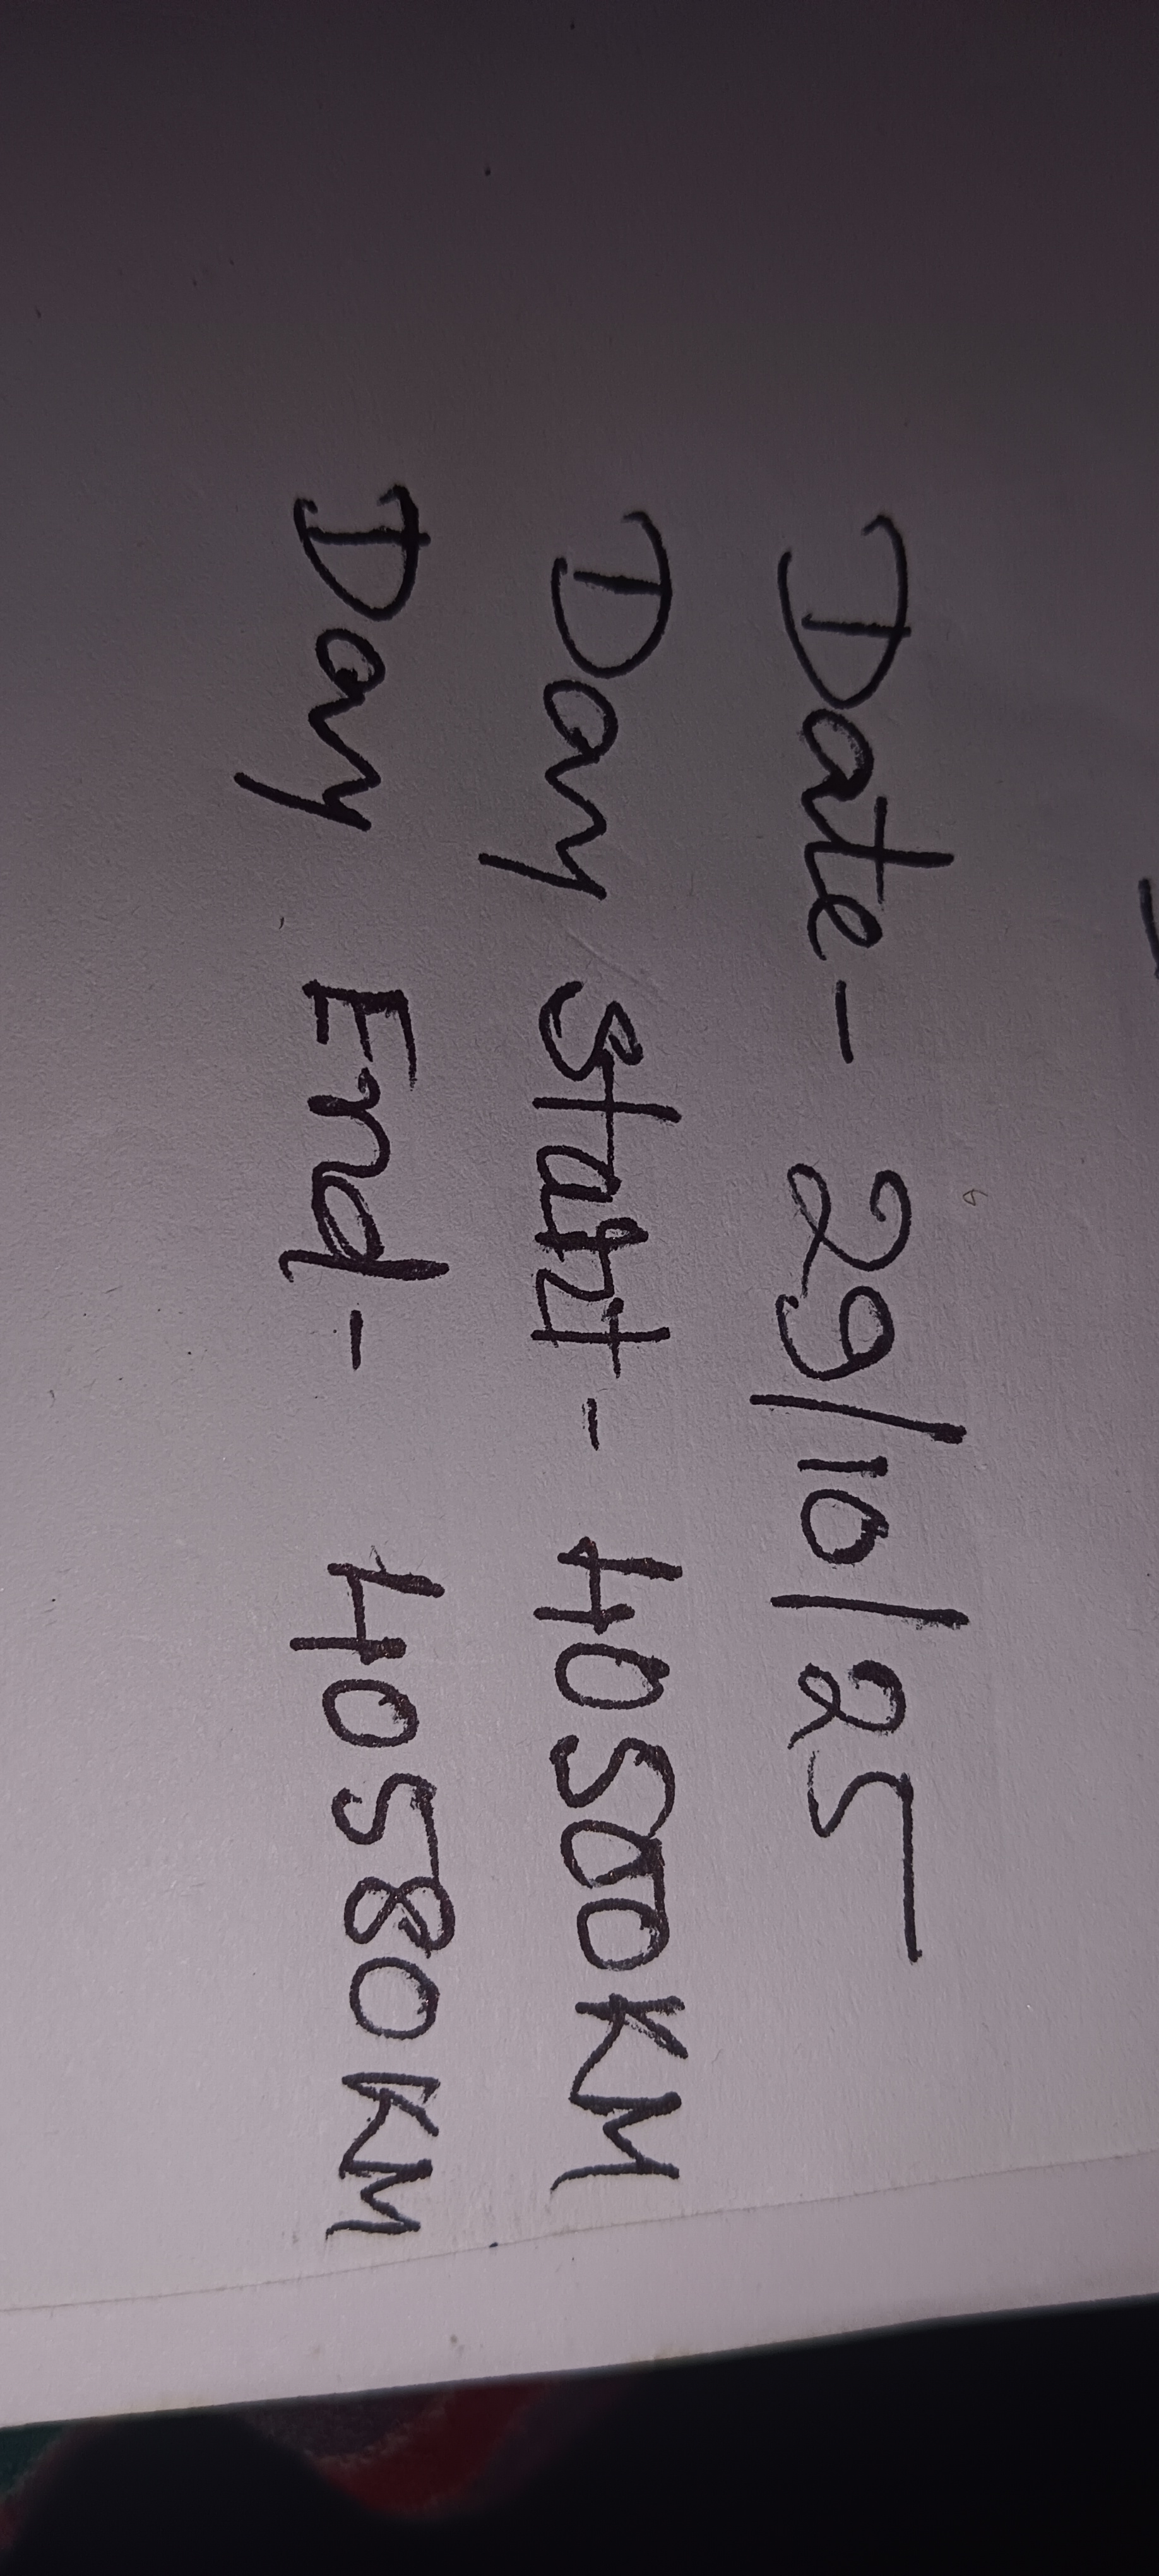 Date- 29/10/25
Day Start - 40500KM
Day End - 40580KM